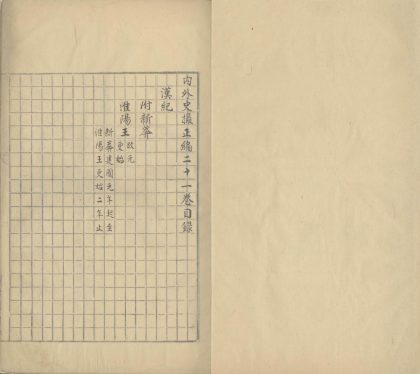 內外史撮正編二十一卷目錄
漢紀
附新莽
淮陽王 改元更始
新莽建國元年起至
淮陽王更始二年止